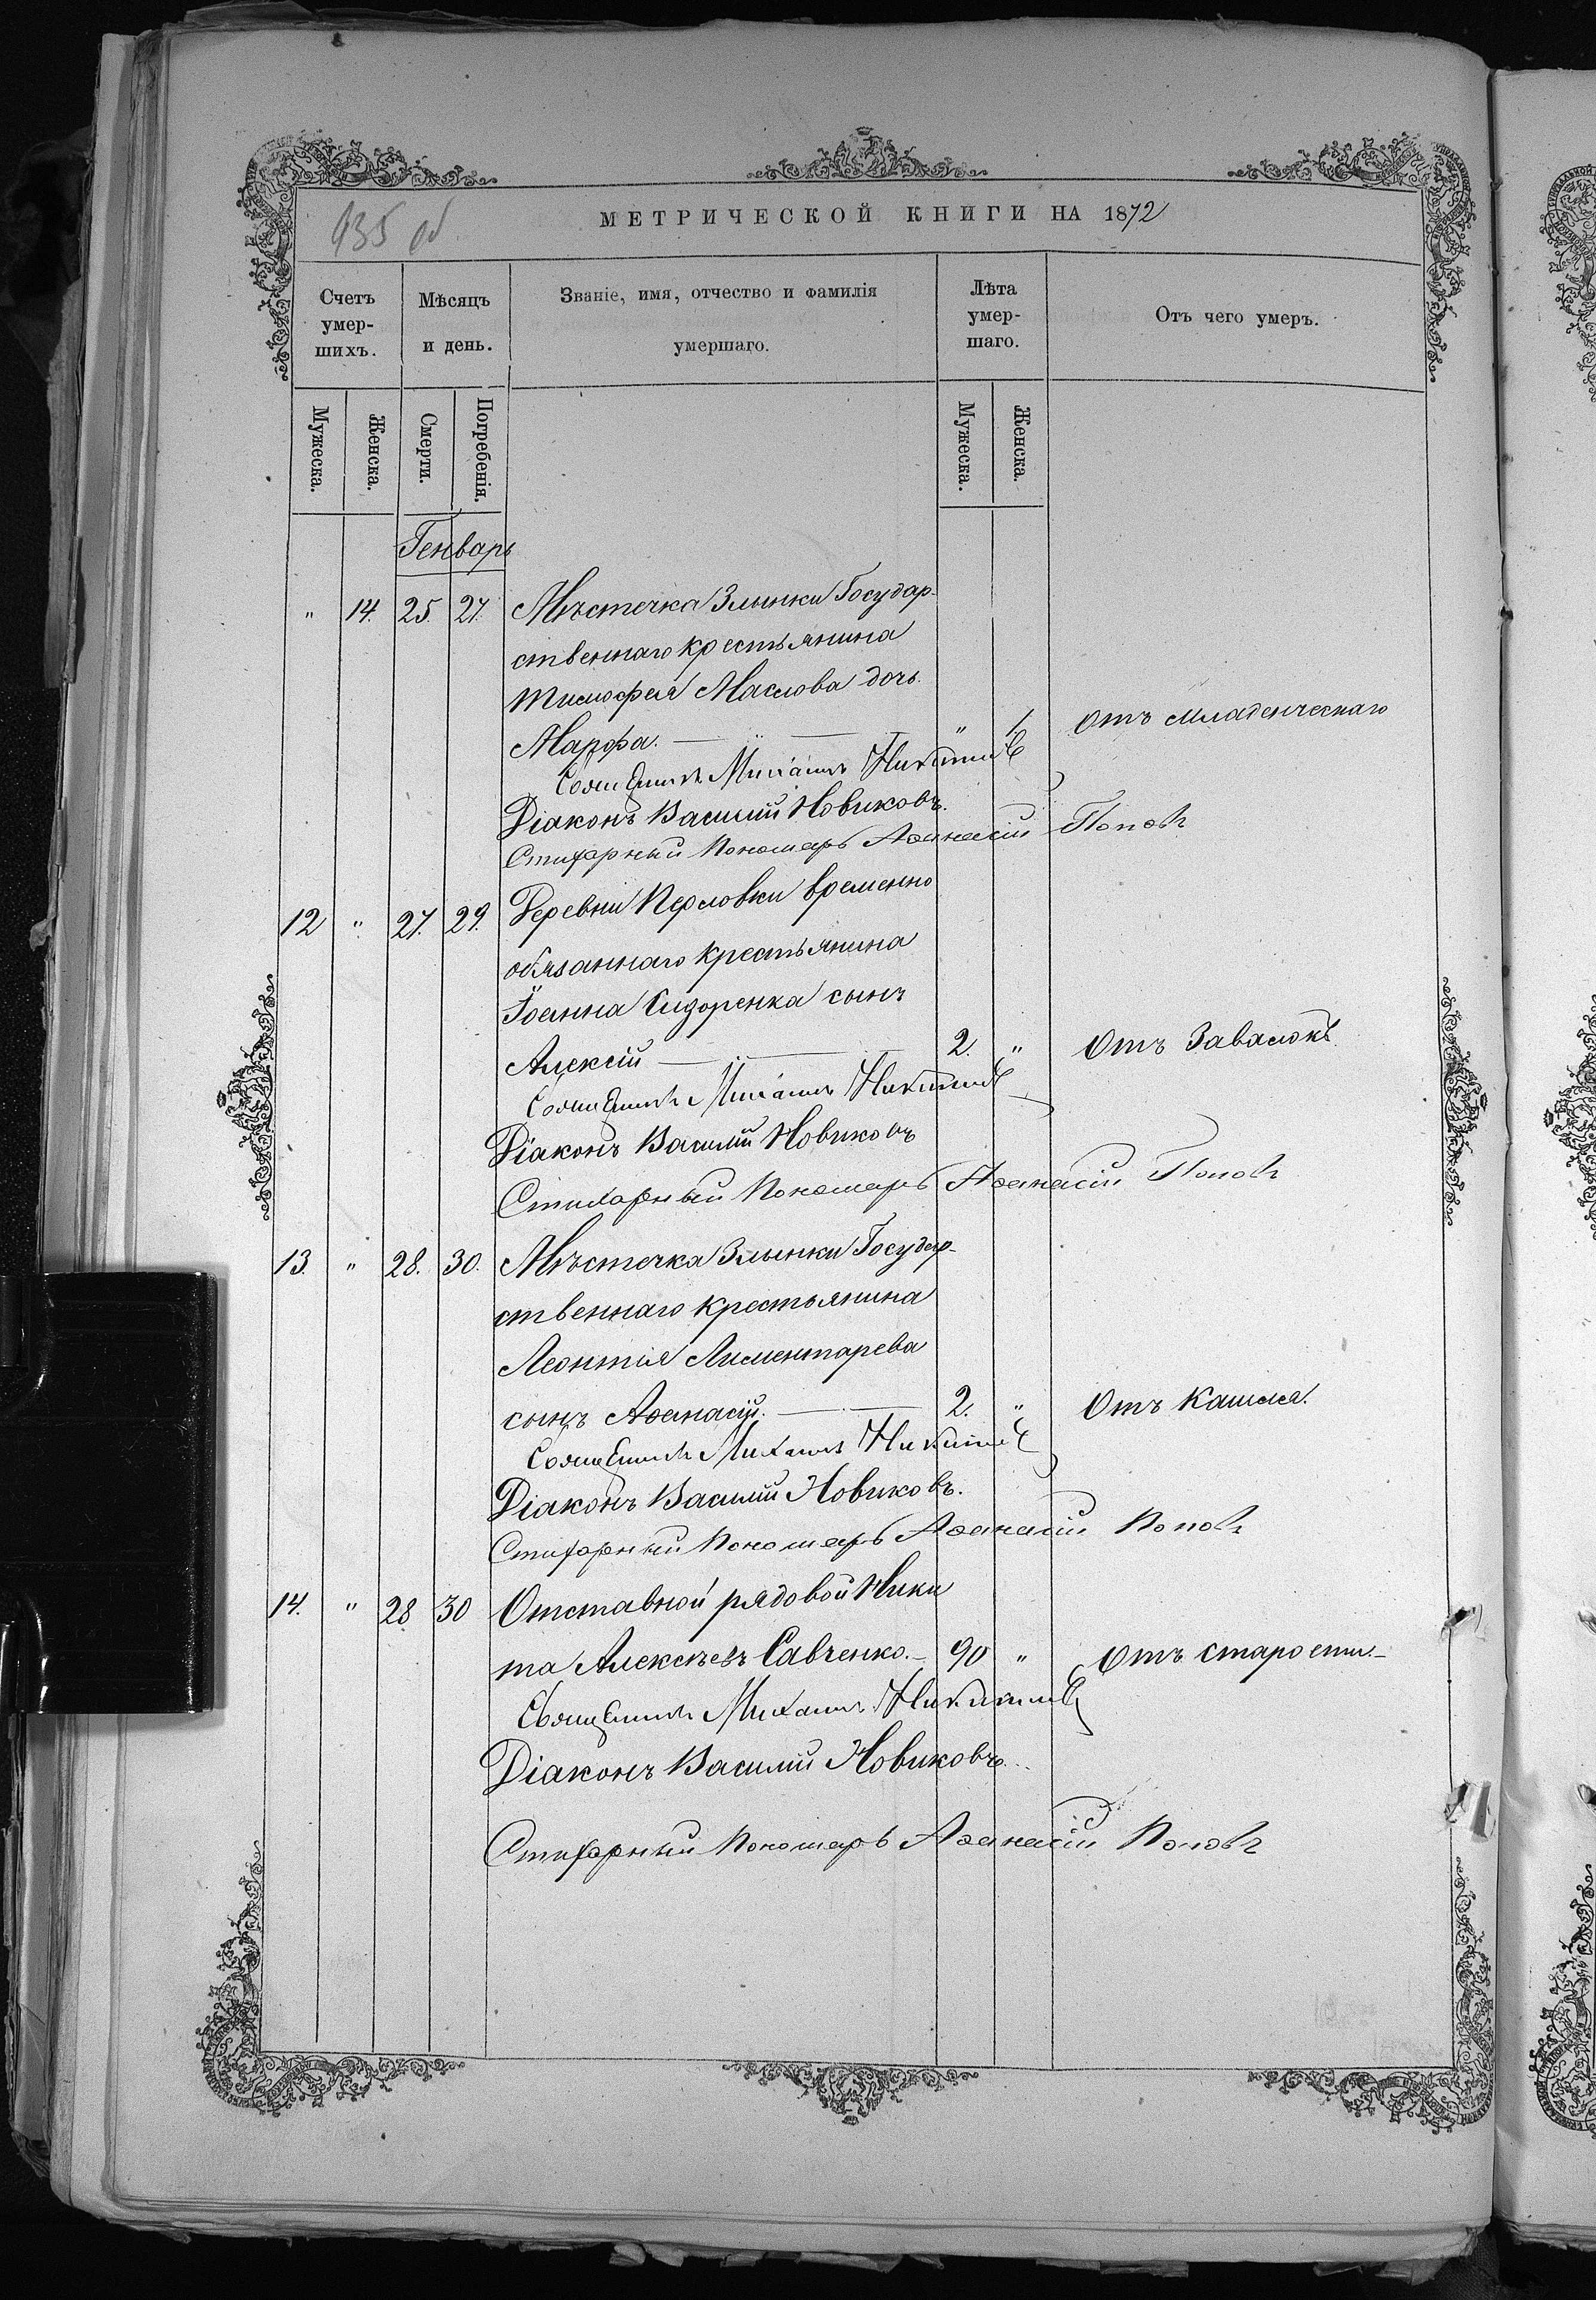 135 об
МЕТРИЧЕСКОЙ КНИГИ НА 1872
Счетъ умер-шихъ.
Мѣсяцъ и день.
Званіе, имя, отчество и фамилія умершаго.
Лѣта умер-шаго.
Отъ чего умеръ.
Мужеска.
Женска.
Смерти.
Погребенія.
Мужеска.
Женска.
Генварь
" 14. 25. 27. Мѣстечка Злынки Государ-
ственнаго крестьянина
Тимофея Маслова дочь
Марфа. — " 1 Отъ младенческаго
Священникъ Михаилъ Никитинъ
Діаконъ Василій Новиковъ.
Стихарный Пономарь Аѳанасій Поповъ
12 " 27. 29. Деревни Перловки временно
обязаннаго крестьянина
Іоанна Сидоренка сынъ
Алексій — 2. " Отъ Завалокъ.
Священникъ Михаилъ Никитинъ
Діаконъ Василій Новиковъ
Стихарный Пономарь Аѳанасій Поповъ
13. " 28. 30. Мѣстечка Злынки Государ-
ственнаго крестьянина
Леонтія Лиментарева
сынъ Аѳанасій. — 2. " Отъ Кашля.
Священникъ Михаилъ Никитинъ
Діаконъ Василій Новиковъ.
Стихарный Пономарь Аѳанасій Поповъ
14. " 28 30 Отставной рядовой Ники
та Алексѣевъ Савченко. — 90 " Отъ старости. —
Священникъ Михаилъ Никитинъ
Діаконъ Василій Новиковъ.
Стихарный Пономарь Аѳанасій Поповъ